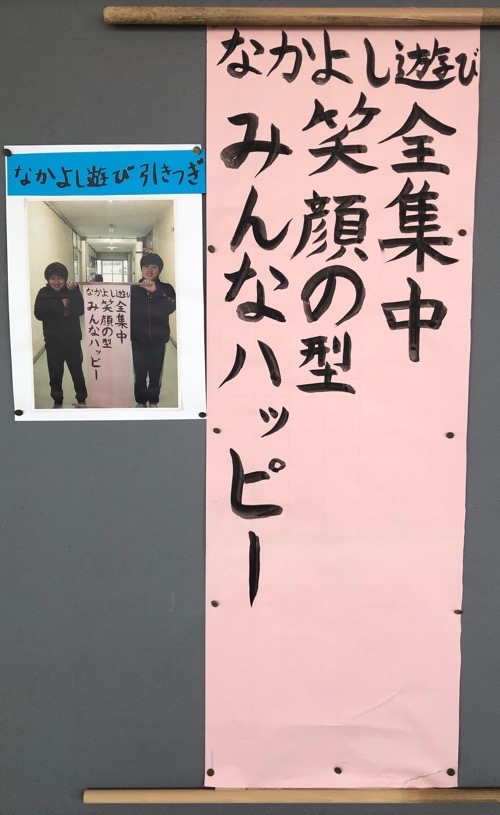 なかよし遊び
全集中
笑顔の型
みんなハッピー
なかよし遊び引きつぎ
なかよし遊び
全集中
笑顔の型
みんなハッピー